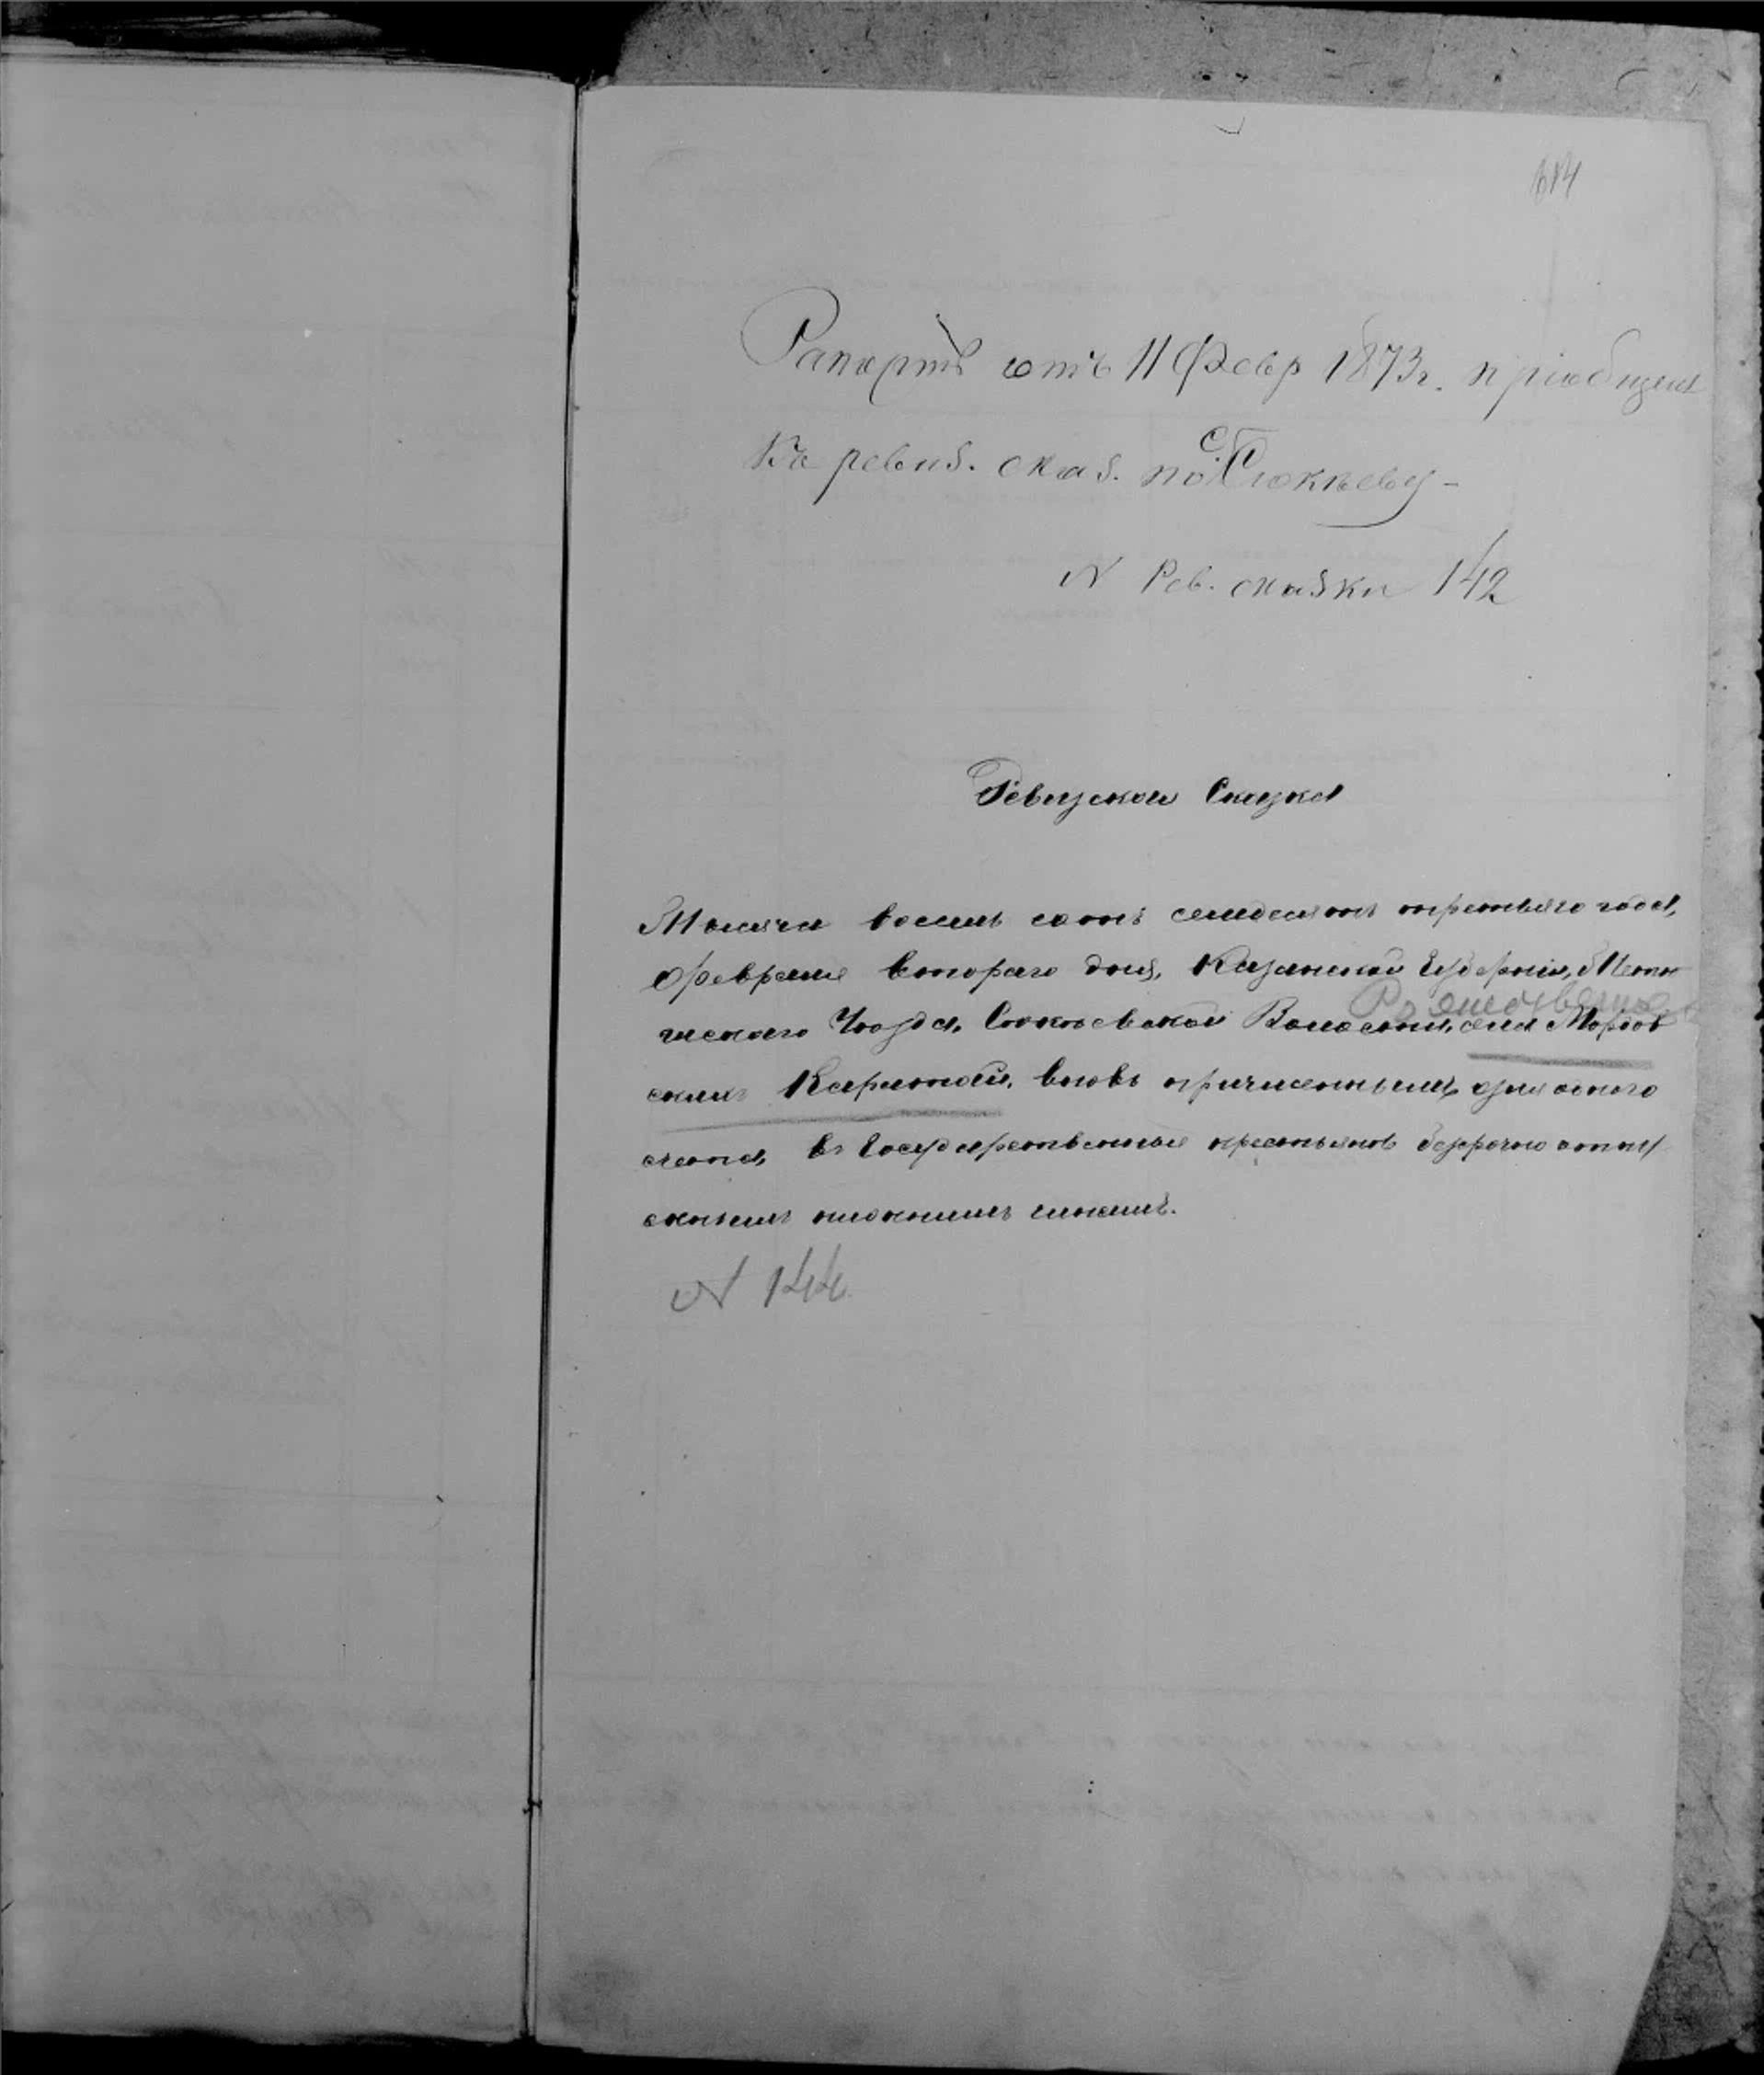 614
Рапортъ отъ 11 Февр 1873 г. пріобщенъ
къ ревиз. сказ. по с. Сюкѣеву –
N Рев. сказки 142
Ревизская Сказка
Тысяча восемь сотъ семдесятъ третьяго года,
Февраля втораго дня, Казанской Губерніи, Тетю
Рождествено
шскаго Уѣзда, Сюкѣевской Волости, села Мордов
скихъ Каратай, вновь причисленнымъ для одного
счета, въ Государственные крестьяне безсрочно отпу
скнымъ нижнимъ чинамъ.
N 144